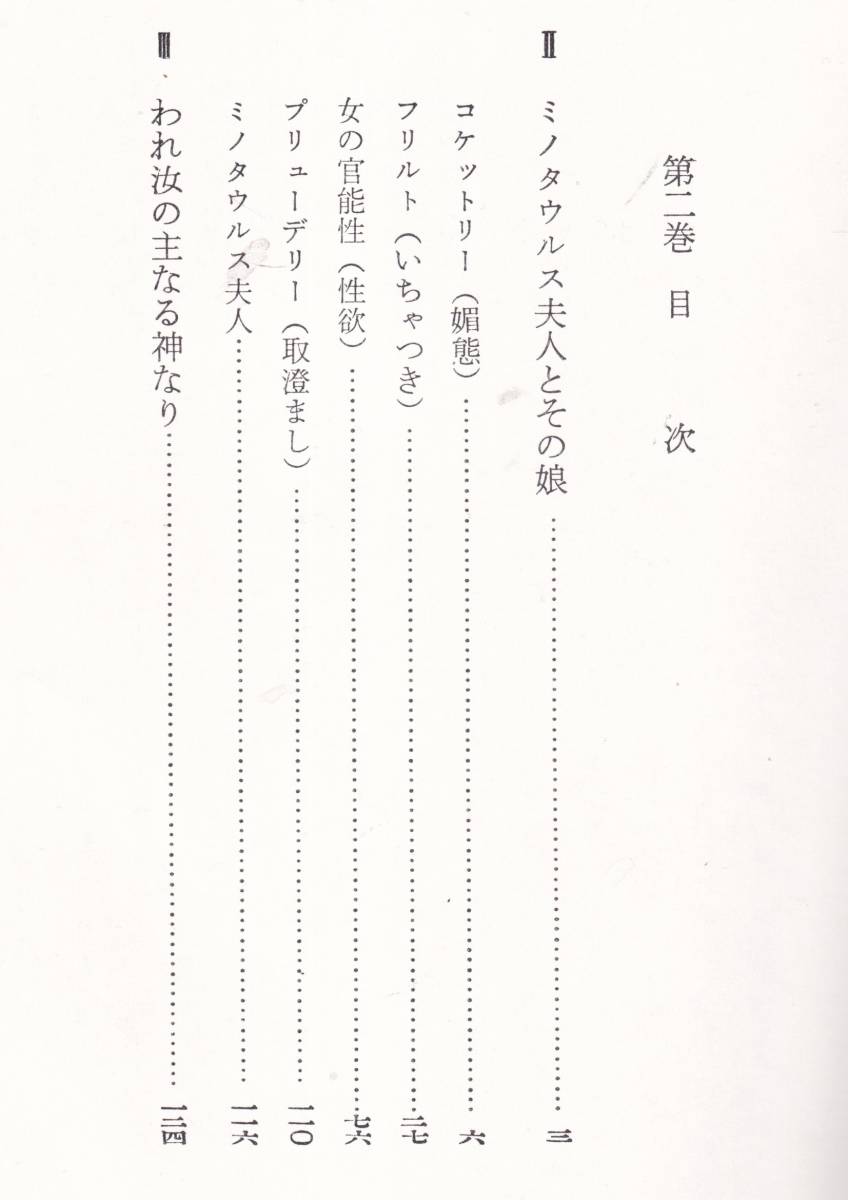 第二巻 目 次
Ⅱ ミノタウルス夫人とその娘……三
コケットリー(媚態)……六
フリルト(いちゃつき)……二七
女の官能性(性欲)……七六
プリューデリー(取澄まし)……一一〇
ミノタウルス夫人……一一六
Ⅲ われ汝の主なる神なり……一三四